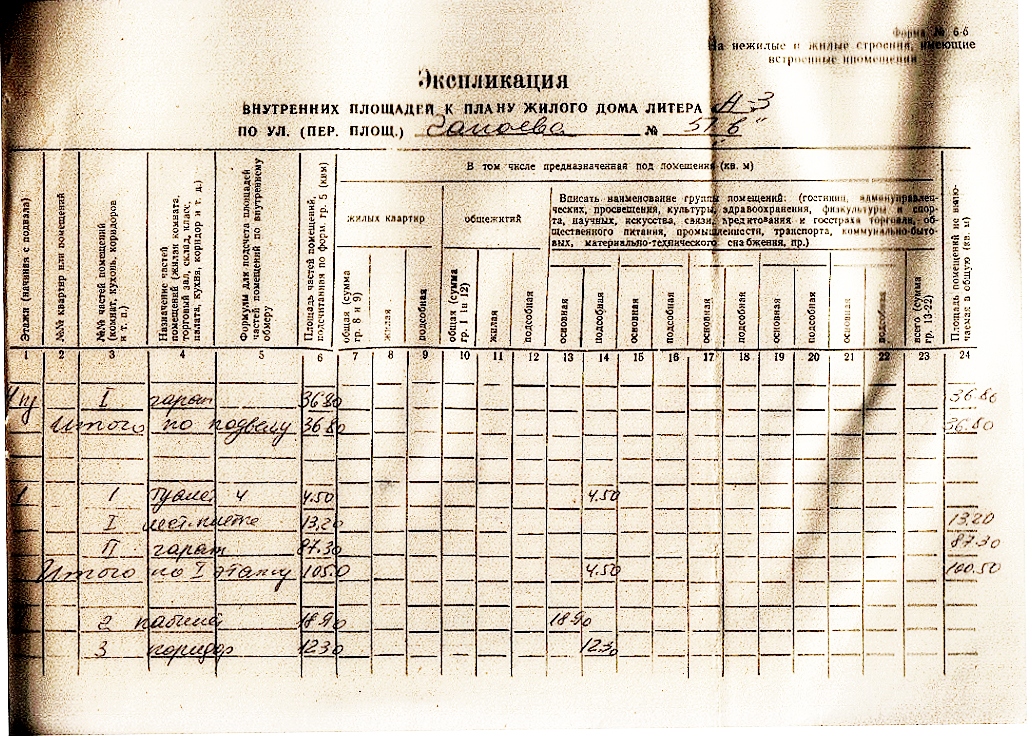 Форма № 6-б
На нежилые и жилые строения, имеющие
встроенные помещения
Экспликация
ВНУТРЕННИХ ПЛОЩАДЕЙ К ПЛАНУ ЖИЛОГО ДОМА ЛИТЕРА Н-3
ПО УЛ. (ПЕР. ПЛОЩ.) Чапаева № 57 "в"
Этажи (начиная с подвала)
№№ квартир или помещений
№№ частей помещений (комнат, кухонь, коридоров и т. п.)
Назначение частей помещений (жилая комната, торговый зал, склад, класс, палата, кухня, коридор и т. д.)
Формулы для подсчета площадей частей помещений по внутреннему обмеру
Площадь частей помещений, подсчитанная по форм. гр. 5 (квм)
В том числе предназначенная под помещения (кв. м)
жилых квартир
общежитий
Вписать наименование группы помещений: (гостиниц, админуправлен-
ческих, просвещения, культуры, здравоохранения, физкультуры и спор-
та, научных, искусства, связи, кредитования и госстраха торговли, об-
щественного питания, промышленности, транспорта, коммунально-быто-
вых, материально-технического снабжения, пр.)
общая (сумма гр. 8 и 9)
жилая
подсобная
общая (сумма гр. 11 и 12)
жилая
подсобная
основная
подсобная
основная
подсобная
основная
подсобная
основная
подсобная
основная
подсобная
всего (сумма гр. 13-22)
Площадь помещений не включаемая в общую (кв. м)
1 2 3 4 5 6 7 8 9 10 11 12 13 14 15 16 17 18 19 20 21 22 23 24
I гараж 36.80 36.80
Итого по подвалу 36.80 36.80
1 1 туалет 4 4.50 4.50
I лест.клетка 13,20 13.20
II гараж 87.30 87.30
Итого по I этажу 105.0 4.50 100.50
2 кабинет 18.90 18.90
3 коридор 12.30 12.30